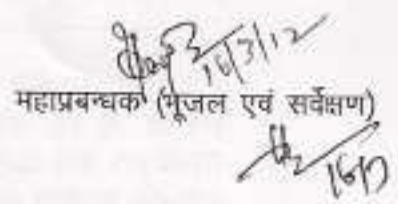 16/3/12
महाप्रबन्धक (भूजल एवं सर्वेक्षण)